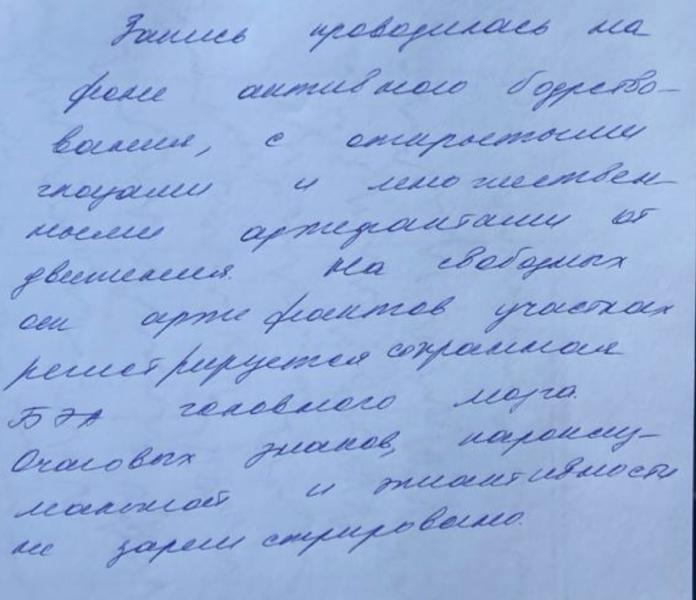 Запись проводилась на
фоне активного бодрство-
вания, с открытыми
глазами и множествен-
ными артефактами от
движения. На свободных
от артефактов участках
регистрируется сохранная
БЭА головного мозга.
Очаговых знаков, пароксиз-
мальной и эпиактивности
не зарегистрировано.